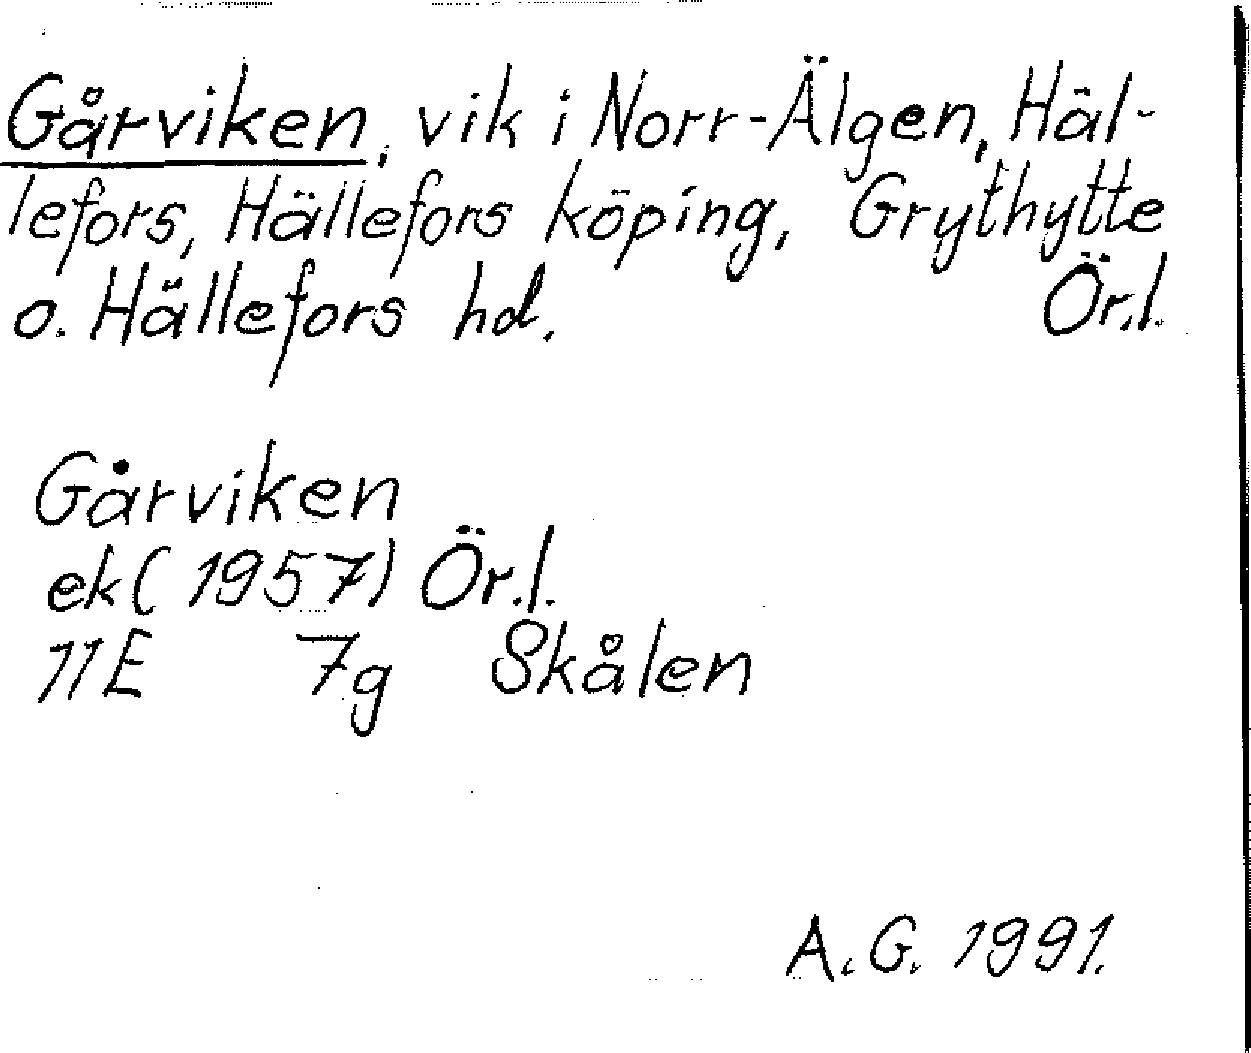 Gårviken, vik i Norr-Älgen, Häl-
lefors, Hällefors köping, Grythytte
o. Hällefors hd. Ör.l.
Gårviken
ek (1957) Ör.l.
11E 7g Skålen
A.G. 1991.